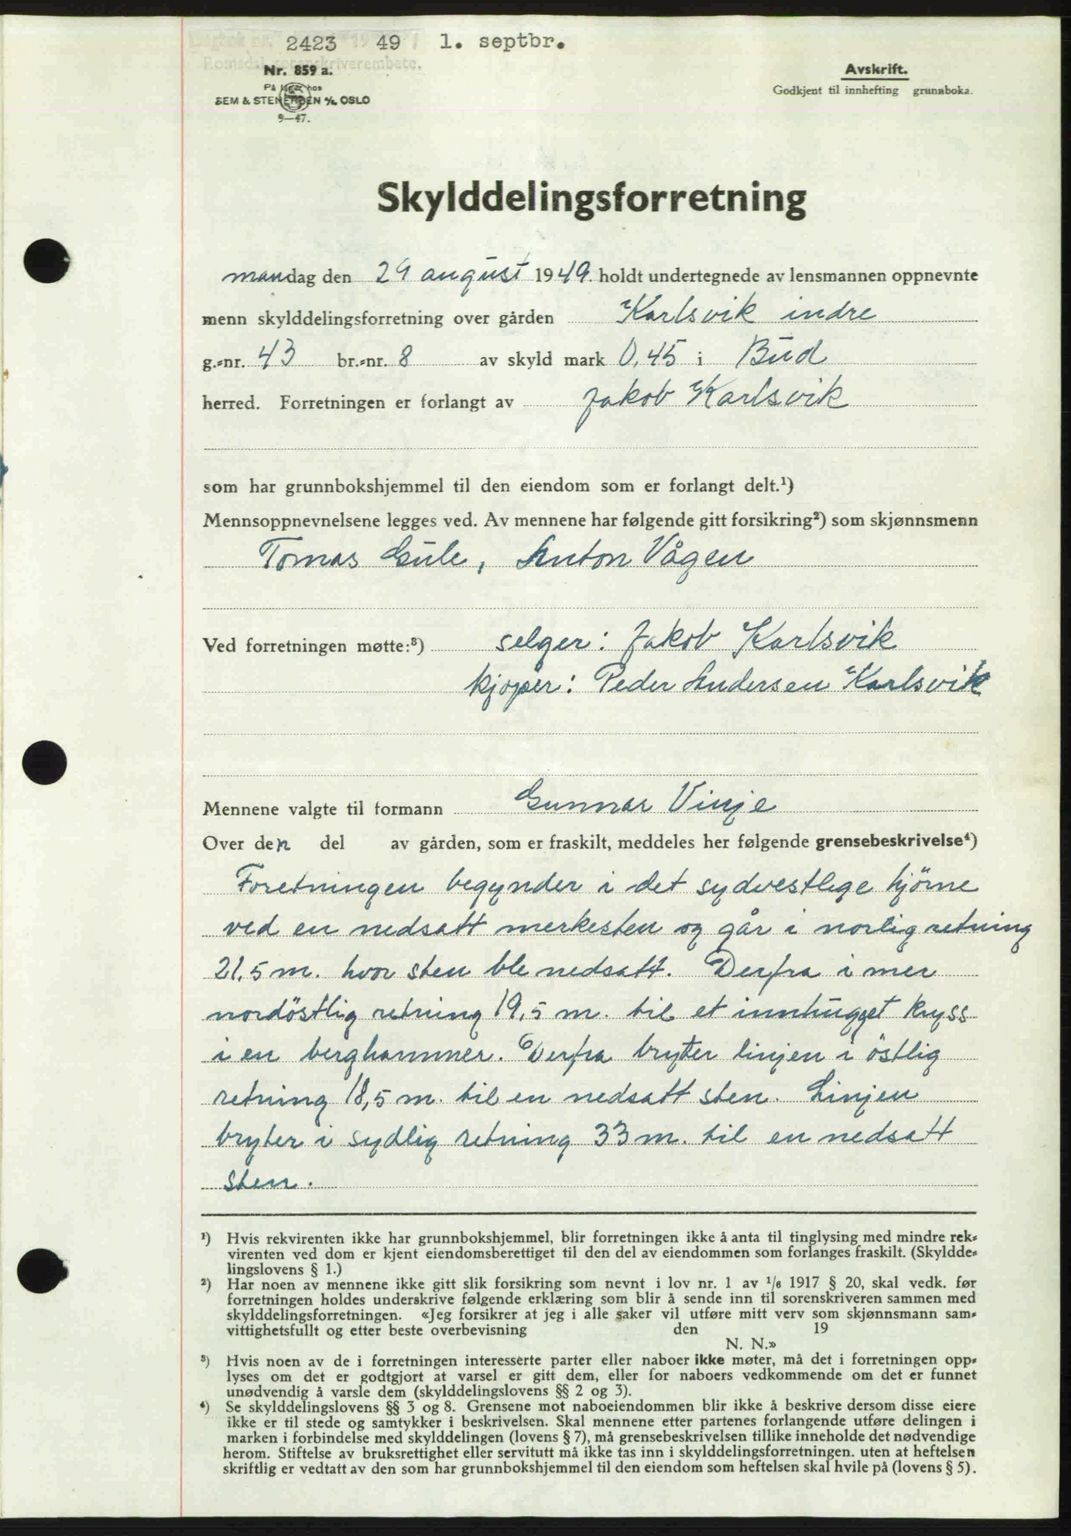 2423 49 1. septbr.
Romsdal sorenskriverembete.
Nr. 859 a.
På lager hos
SEM & STENERSEN A/S, OSLO
9—47.
Avskrift.
Godkjent til innhefting grunnboka.
Skylddelingsforretning
mandag den 29 august 1949. holdt undertegnede av lensmannen oppnevnte
menn skylddelingsforretning over gården Karlsvik indre
g.-nr. 43 br.-nr. 8 av skyld mark 0,45 i Bud
herred. Forretningen er forlangt av Jakob Karlsvik
som har grunnbokshjemmel til den eiendom som er forlangt delt.¹)
Mennsoppnevnelsene legges ved. Av mennene har følgende gitt forsikring²) som skjønnsmenn
Tomas Gule, Anton Vågen
Ved forretningen møtte:³) selger: Jakob Karlsvik
kjøper: Peder Andersen Karlsvik
Mennene valgte til formann Gunnar Vinje
Over den del av gården, som er fraskilt, meddeles her følgende grensebeskrivelse⁴)
Foretningen begynder i det sydvestlige hjörne
ved en nedsatt merkesten og går i norlig retning
21,5 m. hvor sten ble nedsatt. Derfra i mer
nordöstlig retning 19,5 m. til et innhugget kryss
i en berghammer. Derfra bryter linjen i östlig
retning 18,5 m. til en nedsatt sten. Linjen
bryter i sydlig retning 33 m. til en nedsatt
sten.
¹) Hvis rekvirenten ikke har grunnbokshjemmel, blir forretningen ikke å anta til tinglysing med mindre rek-
virenten ved dom er kjent eiendomsberettiget til den del av eiendommen som forlanges fraskilt. (Skyldde-
lingslovens § 1.)
²) Har noen av mennene ikke gitt slik forsikring som nevnt i lov nr. 1 av 1/6 1917 § 20, skal vedk. før
forretningen holdes underskrive følgende erklæring som blir å sende inn til sorenskriveren sammen med
skylddelingsforretningen. «Jeg forsikrer at jeg i alle saker vil utføre mitt verv som skjønnsmann sam-
vittighetsfullt og etter beste overbevisning den 19
N. N.»
³) Hvis noen av de i forretningen interesserte parter eller naboer ikke møter, må det i forretningen opp-
lyses om det er godtgjort at varsel er gitt dem, eller for naboers vedkommende om det er funnet
unødvendig å varsle dem (skylddelingslovens §§ 2 og 3).
⁴) Se skylddelingslovens §§ 3 og 8. Grensene mot naboeiendommen blir ikke å beskrive dersom disse eiere
ikke er til stede og samtykker i beskrivelsen. Skal mennene etter partenes forlangende utføre delingen i
marken i forbindelse med skylddelingen (lovens § 7), må grensebeskrivelsen tillike inneholde det nødvendige
herom. Stiftelse av bruksrettighet eller servitutt må ikke tas inn i skylddelingsforretningen. uten at heftelsen
skriftlig er vedtatt av den som har grunnbokshjemmel til den eiendom som heftelsen skal hvile på (lovens § 5).